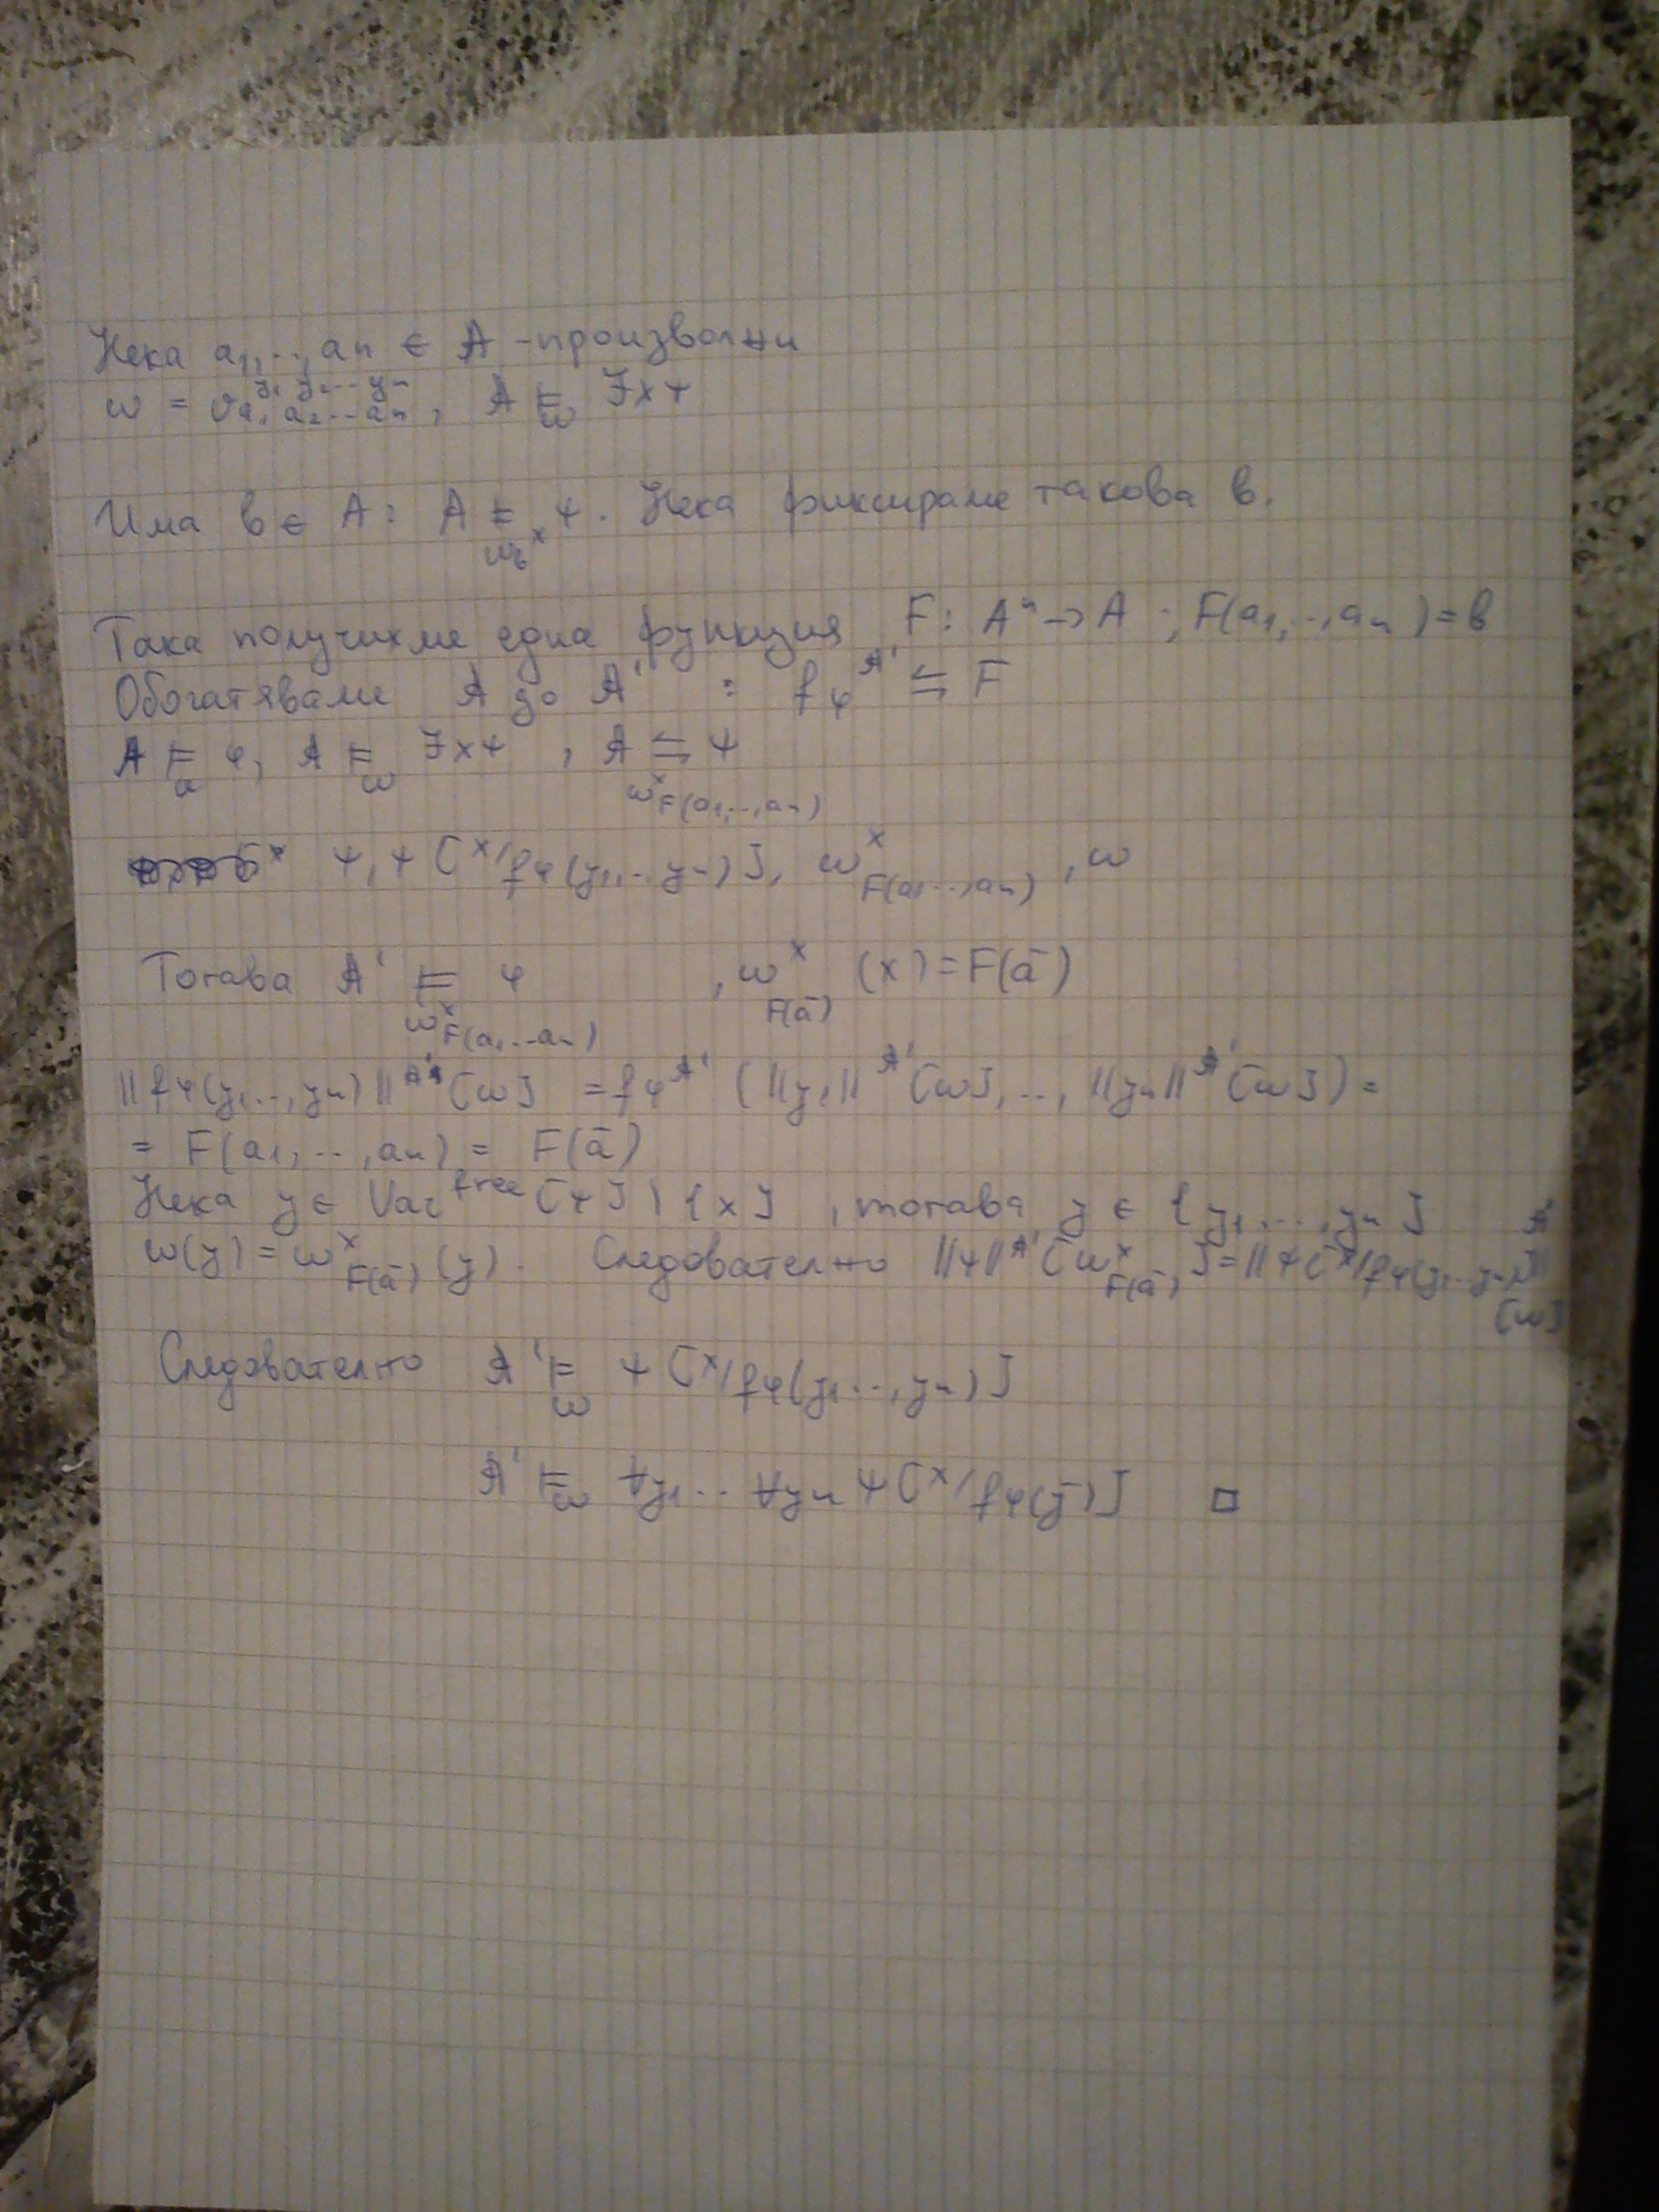 Нека a₁,..,aₙ ∈ A - произволни
ω = v^{y₁ y₂...yₙ}_{a₁ a₂...aₙ}, A ⊨_ω ∃xψ
Има b ∈ A: A ⊨_{ω^x_b} ψ. Нека фиксираме такова b.
Така получихме една функция F: Aⁿ → A ; F(a₁,..,aₙ) = b
Обогатяваме A до A' : f_φ^{A'} ⇆ F
A ⊨ φ, A ⊨_ω ∃xψ , A ⇆_{ω^x_{F(a₁,..,aₙ)}} ψ
ψ, ψ[x/f_φ(y₁,..yₙ)], ω^x_{F(a₁...,aₙ)}, ω
Тогава A' ⊨_{ω^x_{F(a₁,..aₙ)}} φ , ω^x_{F(ā)} (x) = F(ā)
||f_φ(y₁..,yₙ)||^{A'} [ω] = f_φ^{A'} (||y₁||^{A'}[ω],..,||yₙ||^{A'}[ω]) =
= F(a₁,..,aₙ) = F(ā)
Нека y ∈ Var^{free}[ψ] \ {x} , тогава y ∈ {y₁,...,yₙ}
ω(y) = ω^x_{F(ā)}(y). Следователно ||ψ||^{A'}[ω^x_{F(ā)}] = ||ψ[x/f_φ(y₁..yₙ)]||^{A'}[ω]
Следователно A' ⊨_ω ψ[x/f_φ(y₁..,yₙ)]
A' ⊨_ω ∀y₁..∀yₙ ψ[x/f_φ(ȳ)] □